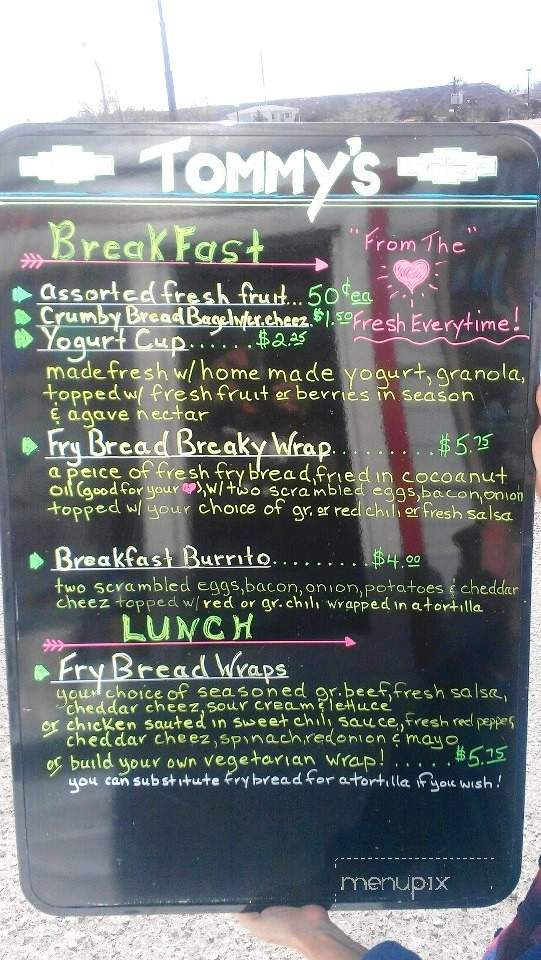 TOMMY'S
BreakFast
"From The"
assorted fresh fruit... 50¢ea
Crumby Bread Bagel w/cr.cheez. $1.50
Fresh Everytime!
Yogurt Cup......$2.25
made fresh w/ home made yogurt, granola,
topped w/ fresh fruit or berries in season
& agave nectar
Fry Bread Breaky Wrap.........$5.75
a peice of fresh fry bread, fried in cocoanut
oil (good for your ♥), w/ two scrambled eggs, bacon, onion
topped w/ your choice of gr. or red chili or fresh salsa
Breakfast Burrito.........$4.00
two scrambled eggs, bacon, onion, potatoes & cheddar
cheez topped w/ red or gr. chili wrapped in a tortilla
LUNCH
Fry Bread Wraps
your choice of seasoned gr. beef, fresh salsa,
cheddar cheez, sour cream & lettuce
or chicken sauted in sweet chili sauce, fresh red pepper,
cheddar cheez, spinach, red onion & mayo
or build your own vegetarian wrap! .....$5.75
you can substitute fry bread for a tortilla if you wish!
menupix